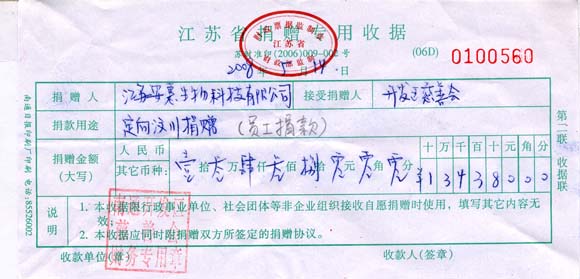 江苏省捐赠专用收据
江苏省
苏财准印(2006)009-002号
(06D) 0100560
2008年5月14日
捐赠人 接受捐赠人 开发区慈善会
捐款用途 定向汶川捐赠 (员工捐款)
捐赠金额(大写) 人民币 其它币种: 壹拾 万肆仟 佰捌拾零元零角零分
十万千百十元角分
¥1343800 0
说明
1. 本收据限行政事业单位、社会团体等非企业组织接收自愿捐赠时使用，填写其它内容无效;
2. 本收据应同时附捐赠双方所签定的捐赠协议。
收款单位(章) 收款人(签章)
财务专用章
第二联 收据联
南通日报印刷厂印刷 电话:85526002